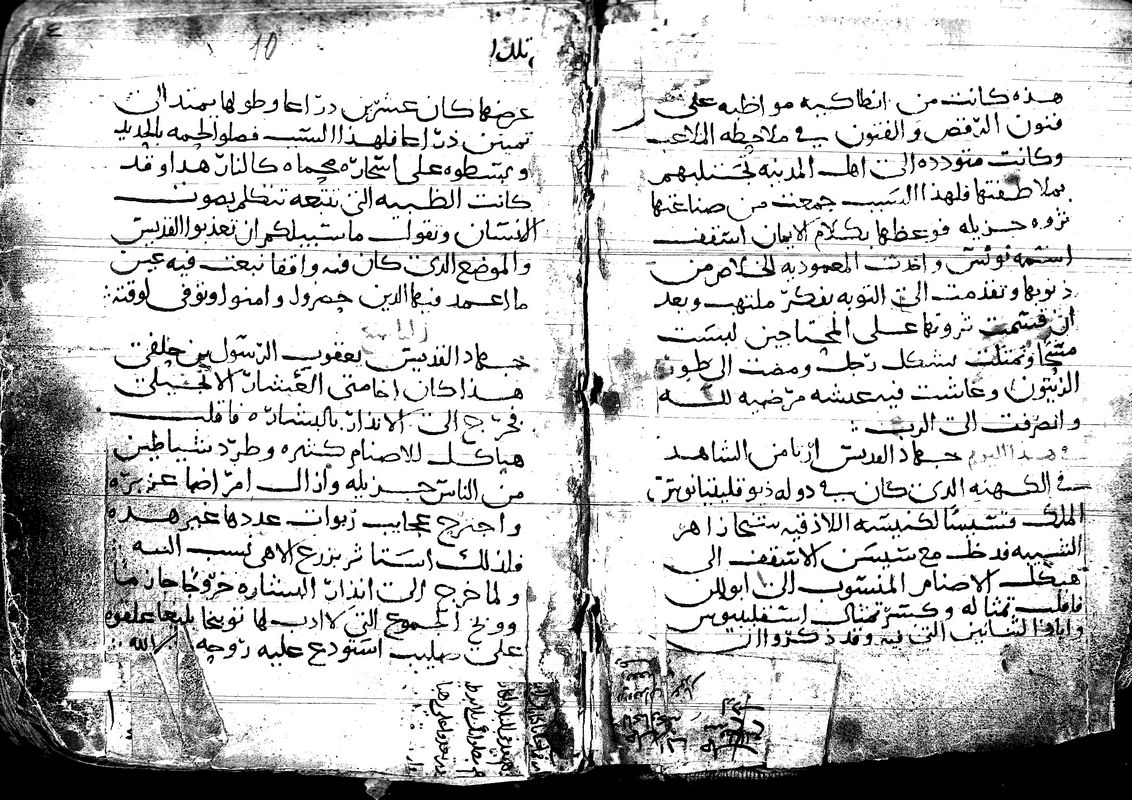 هذه كانت من انطاكيه مواظبه على
فنون الرقص والفنون في ملاحظه الملاعب
وكانت متودده الى اهل المدينه تجتذبهم
بملاطفتها فلهذا السبب جمعت من صناعتها
ثروه جزيله فوعظها بكلام الايمان اسقف
اسمه نونس واخذت المعموديه الخلاص من
ذنوبها وتقدمت الى التوبه بفكر ملتهب وبعد
ان قسمت ثروتها على المحتاجين لبست
مسحا وتمثلت بشكل رجل ومضت الى طور
الزيتون وعاشت فيه عيشه مرضيه لله
وانصرفت الى الرب :
في هذا اليوم جهاد القديس ارتامن الشاهد
في الكهنه الذي كان في دوله ديوقليتيانوس
الملك قسيسا لكنيسه اللاذقيه شيخا زاهر
الشيبه فدخل مع سيسن الاسقف الى
هيكل الاصنام المنسوب الى ابوللن
فاقلب تمثاله وكسر تمثال اسقليبيوس
واباد التنانين التي فيه وقد ذكروا ان
10
تلك ا
عرضها كان عشرين ذراعا وطولها يمتد الى
ثمنين ذراعا فلهذا السبب فصلوا لحمه بالحديد
وبسطوه على اسجاره محماه كالنار هذا وقد
كانت الظبيه التي تتبعه تتكلم بصوت
الانسان وتقول ما سبيلكم ان تعذبوا القديس
والموضع الذي كان فيه واقفا نبعت فيه عين
ما اعتمد فيها الدين حضروا وامنوا وتوفى لوقته :
جهاد القديس يعقوب الرسول بن حلفى
هذا كان اخا متى العشار الانجيلي
فخرج الى الانذار بالبشاره فاقلب
هياكل للاصنام كثيره وطرد شياطين
من الناس جزيله وازال امراضا عزيزه
واجترح عجايب ربوات عددها غير هذه
فلذلك استاثر بزرع الاهي نسب اليه
ولما خرج الى انذار البشاره خروجا جازما
ووبخ الجموع التي لا ادب لها توبيخا بليغا علقوه
على صليب استودع عليه روحه لله :